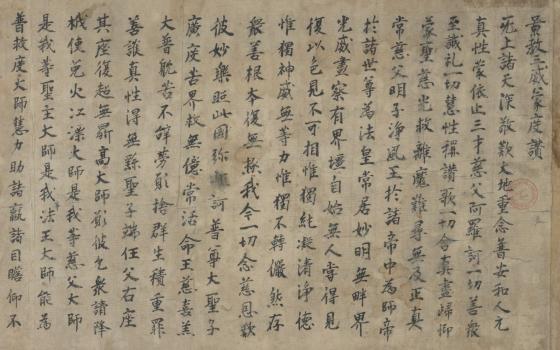 景教三威蒙度讚
无上諸天深敬歎大地重念普安和人元
真性蒙依止三才慈父阿羅訶一切善衆
至誠礼一切慧性稱讚歌一切含真盡歸仰
蒙聖慈光救離魔難尋無及正真
常慈父明子淨風王於諸帝中為師帝
於諸世尊為法皇常居妙明無畔界
光威盡察有界壃自始無人甞得見
復以色見不可相惟獨純凝清淨德
惟獨神威無等力惟獨不轉儼然存
衆善根本復無極我今一切念慈恩歎
彼妙樂照此國弥訶普尊大聖子
廣度苦界救無億常活命王慈喜羔
大普躭苦不辞勞願捨群生積重罪
善護真性得無繇聖子端任父右座
其座復超無鼎高大師願彼乞衆請降
栰使免火江漂大師是我等慈父大師
是我等聖主大師是我法王大師能為
普救度大師慧力助諸羸諸目瞻仰不